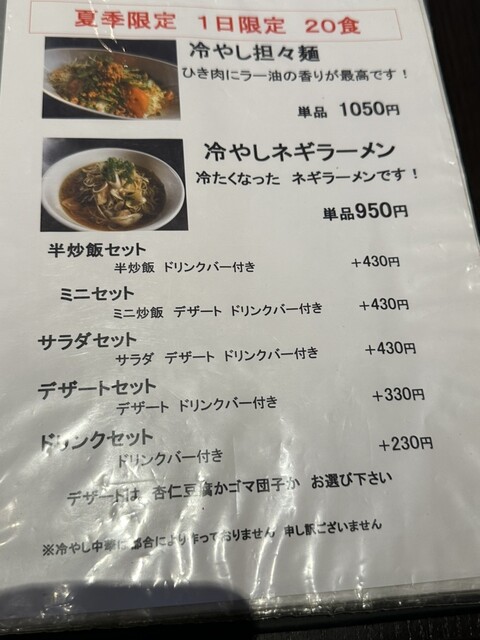 夏季限定 1日限定 20食
冷やし担々麺
ひき肉にラー油の香りが最高です！
単品 1050円
冷やしネギラーメン
冷たくなった ネギラーメンです！
単品950円
半炒飯セット
半炒飯 ドリンクバー付き +430円
ミニセット
ミニ炒飯 デザート ドリンクバー付き +430円
サラダセット
サラダ デザート ドリンクバー付き +430円
デザートセット
デザート ドリンクバー付き +330円
ドリンクセット
ドリンクバー付き +230円
デザートは 杏仁豆腐かゴマ団子か お選び下さい
※冷やし中華は都合により作っておりません 申し訳ございません